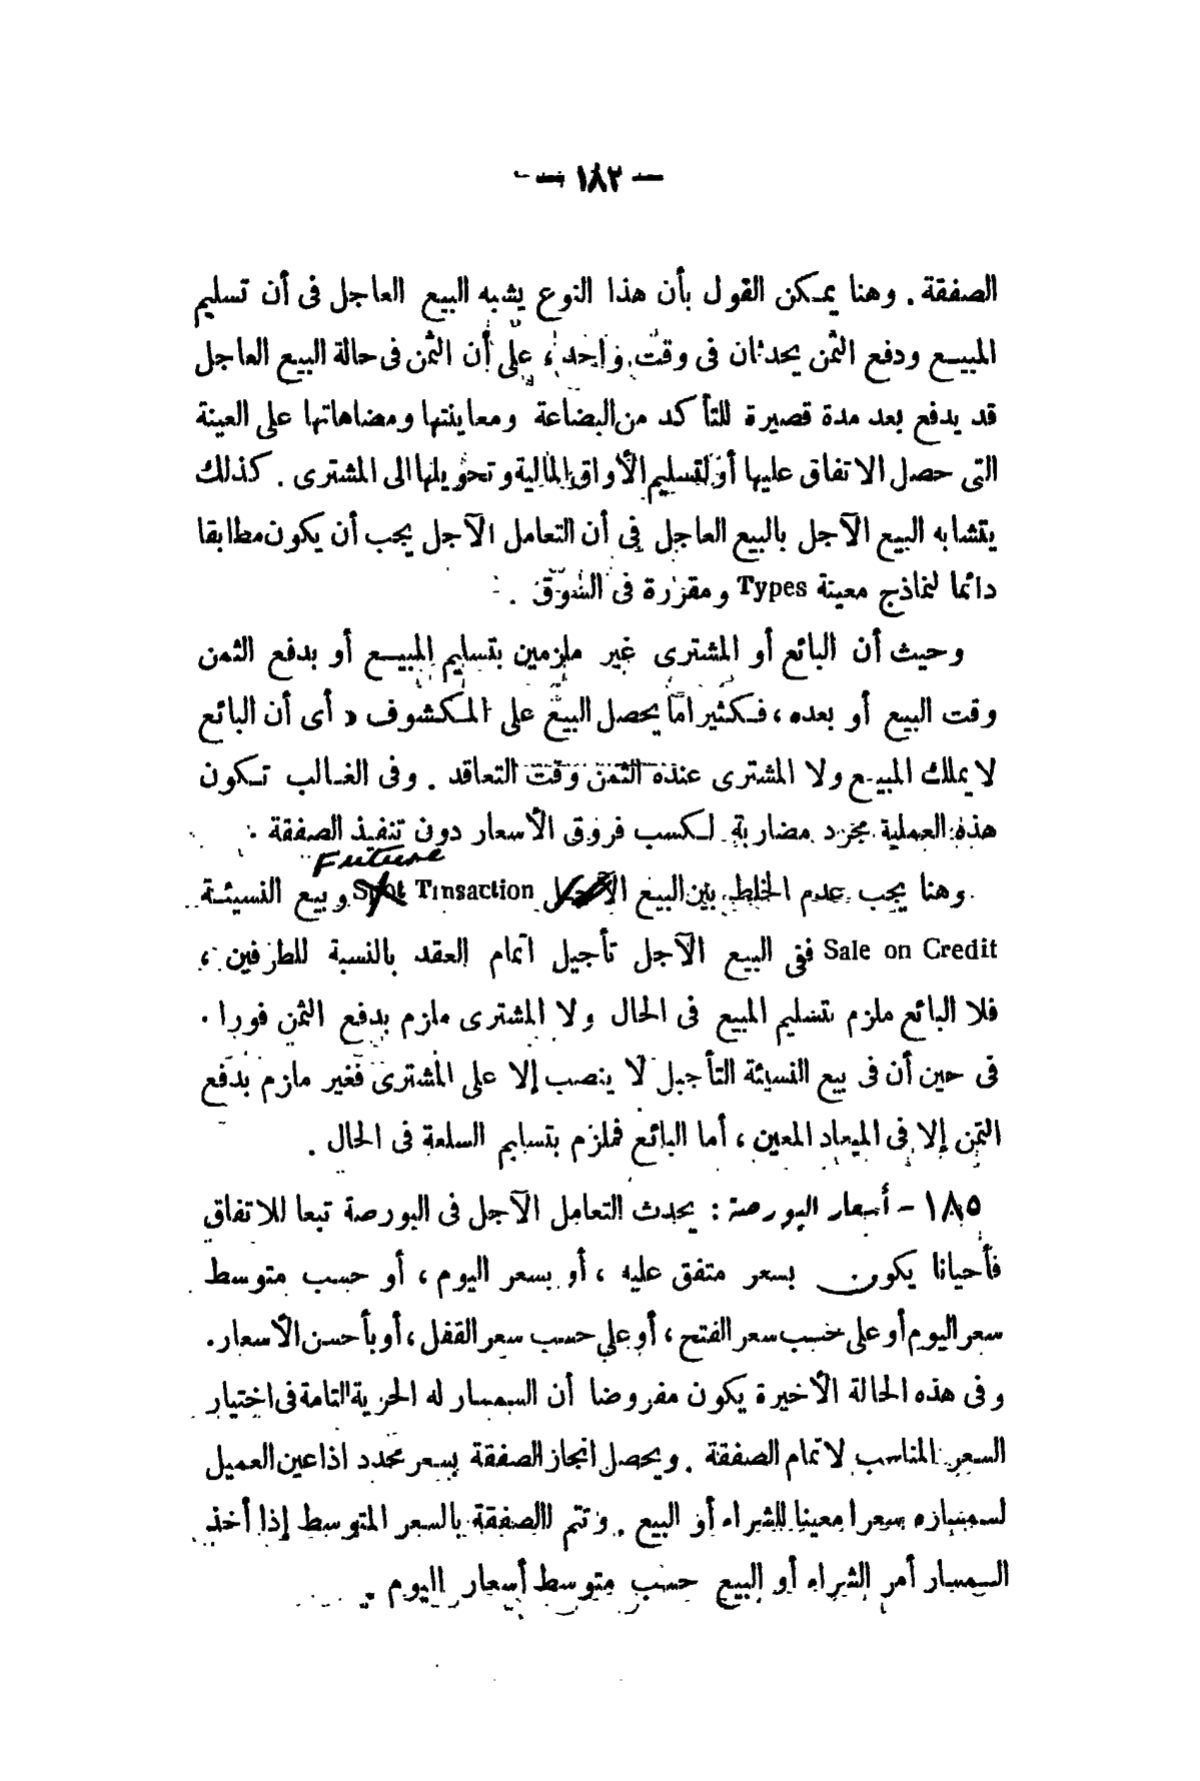 — ١٨٢ —
الصفقة . وهنا يمكن القول بأن هذا النوع يشبه البيع العاجل فى أن تسليم
المبيع ودفع الثمن يحدثان فى وقت واحد ، على أن الثمن فى حالة البيع العاجل
قد يدفع بعد مدة قصيرة للتأكد من البضاعة ومعاينتها ومضاهاتها على العينة
التى حصل الاتفاق عليها أو لتسليم الأوراق المالية وتحويلها الى المشترى . كذلك
يتشابه البيع الآجل بالبيع العاجل فى أن التعامل الآجل يجب أن يكون مطابقا
دائما لنماذج معينة Types ومقررة فى السوق .
وحيث أن البائع أو المشترى غير ملزمين بتسليم المبيع أو بدفع الثمن
وقت البيع أو بعده ، فكثيراما يحصل البيع على المكشوف « أى أن البائع
لا يملك المبيع ولا المشترى عنده الثمن وقت التعاقد . وفى الغالب تكون
هذه العملية مجرد مضاربة لكسب فروق الأسعار دون تنفيذ الصفقة .
Future
وهنا يجب عدم الخلط بين البيع الآجل Spot Tinsaction وبيع النسيئة
Sale on Credit ففى البيع الآجل تأجيل اتمام العقد بالنسبة للطرفين ،
فلا البائع ملزم بتسليم المبيع فى الحال ولا المشترى ملزم بدفع الثمن فورا .
فى حين أن فى بيع النسيئة التأجيل لا ينصب إلا على المشترى فغير ملزم بدفع
الثمن إلا فى الميعاد المعين ، أما البائع فملزم بتسليم السلعة فى الحال .
١٨٥ - أسعار البورصة : يحدث التعامل الآجل فى البورصة تبعا للاتفاق
فأحيانا يكون بسعر متفق عليه ، أو بسعر اليوم ، أو حسب متوسط
سعر اليوم أو على حسب سعر الفتح ، أو على حسب سعر القفل ، أو بأحسن الأسعار .
وفى هذه الحالة الأخيرة يكون مفروضا أن السمسار له الحرية التامة فى اختيار
السعر المناسب لاتمام الصفقة . ويحصل انجاز الصفقة بسعر محدد اذا عين العميل
لسمساره سعرا معينا للشراء أو البيع . وتتم الصفقة بالسعر المتوسط إذا أخذ
السمسار أمر الشراء أو البيع حسب متوسط أسعار اليوم .